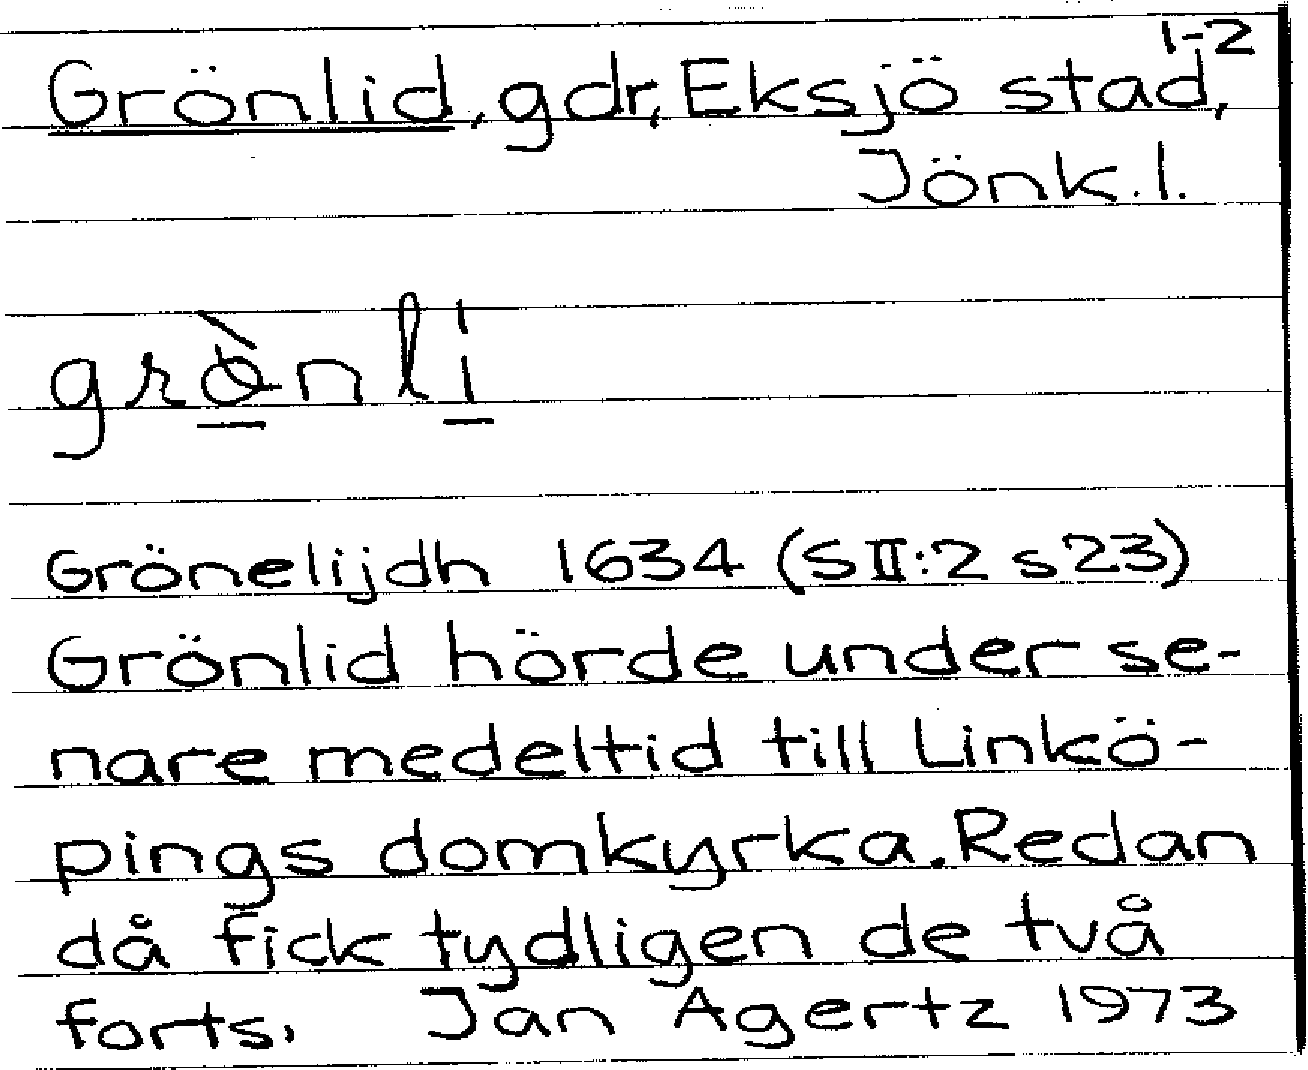 1-2
Grönlid, gdr, Eksjö stad,
Jönk. l.
grònli
Grönelijdh 1634 (S II:2 s 23)
Grönlid hörde under se-
nare medeltid till Linkö-
pings domkyrka. Redan
då fick tydligen de två
forts. Jan Agertz 1973